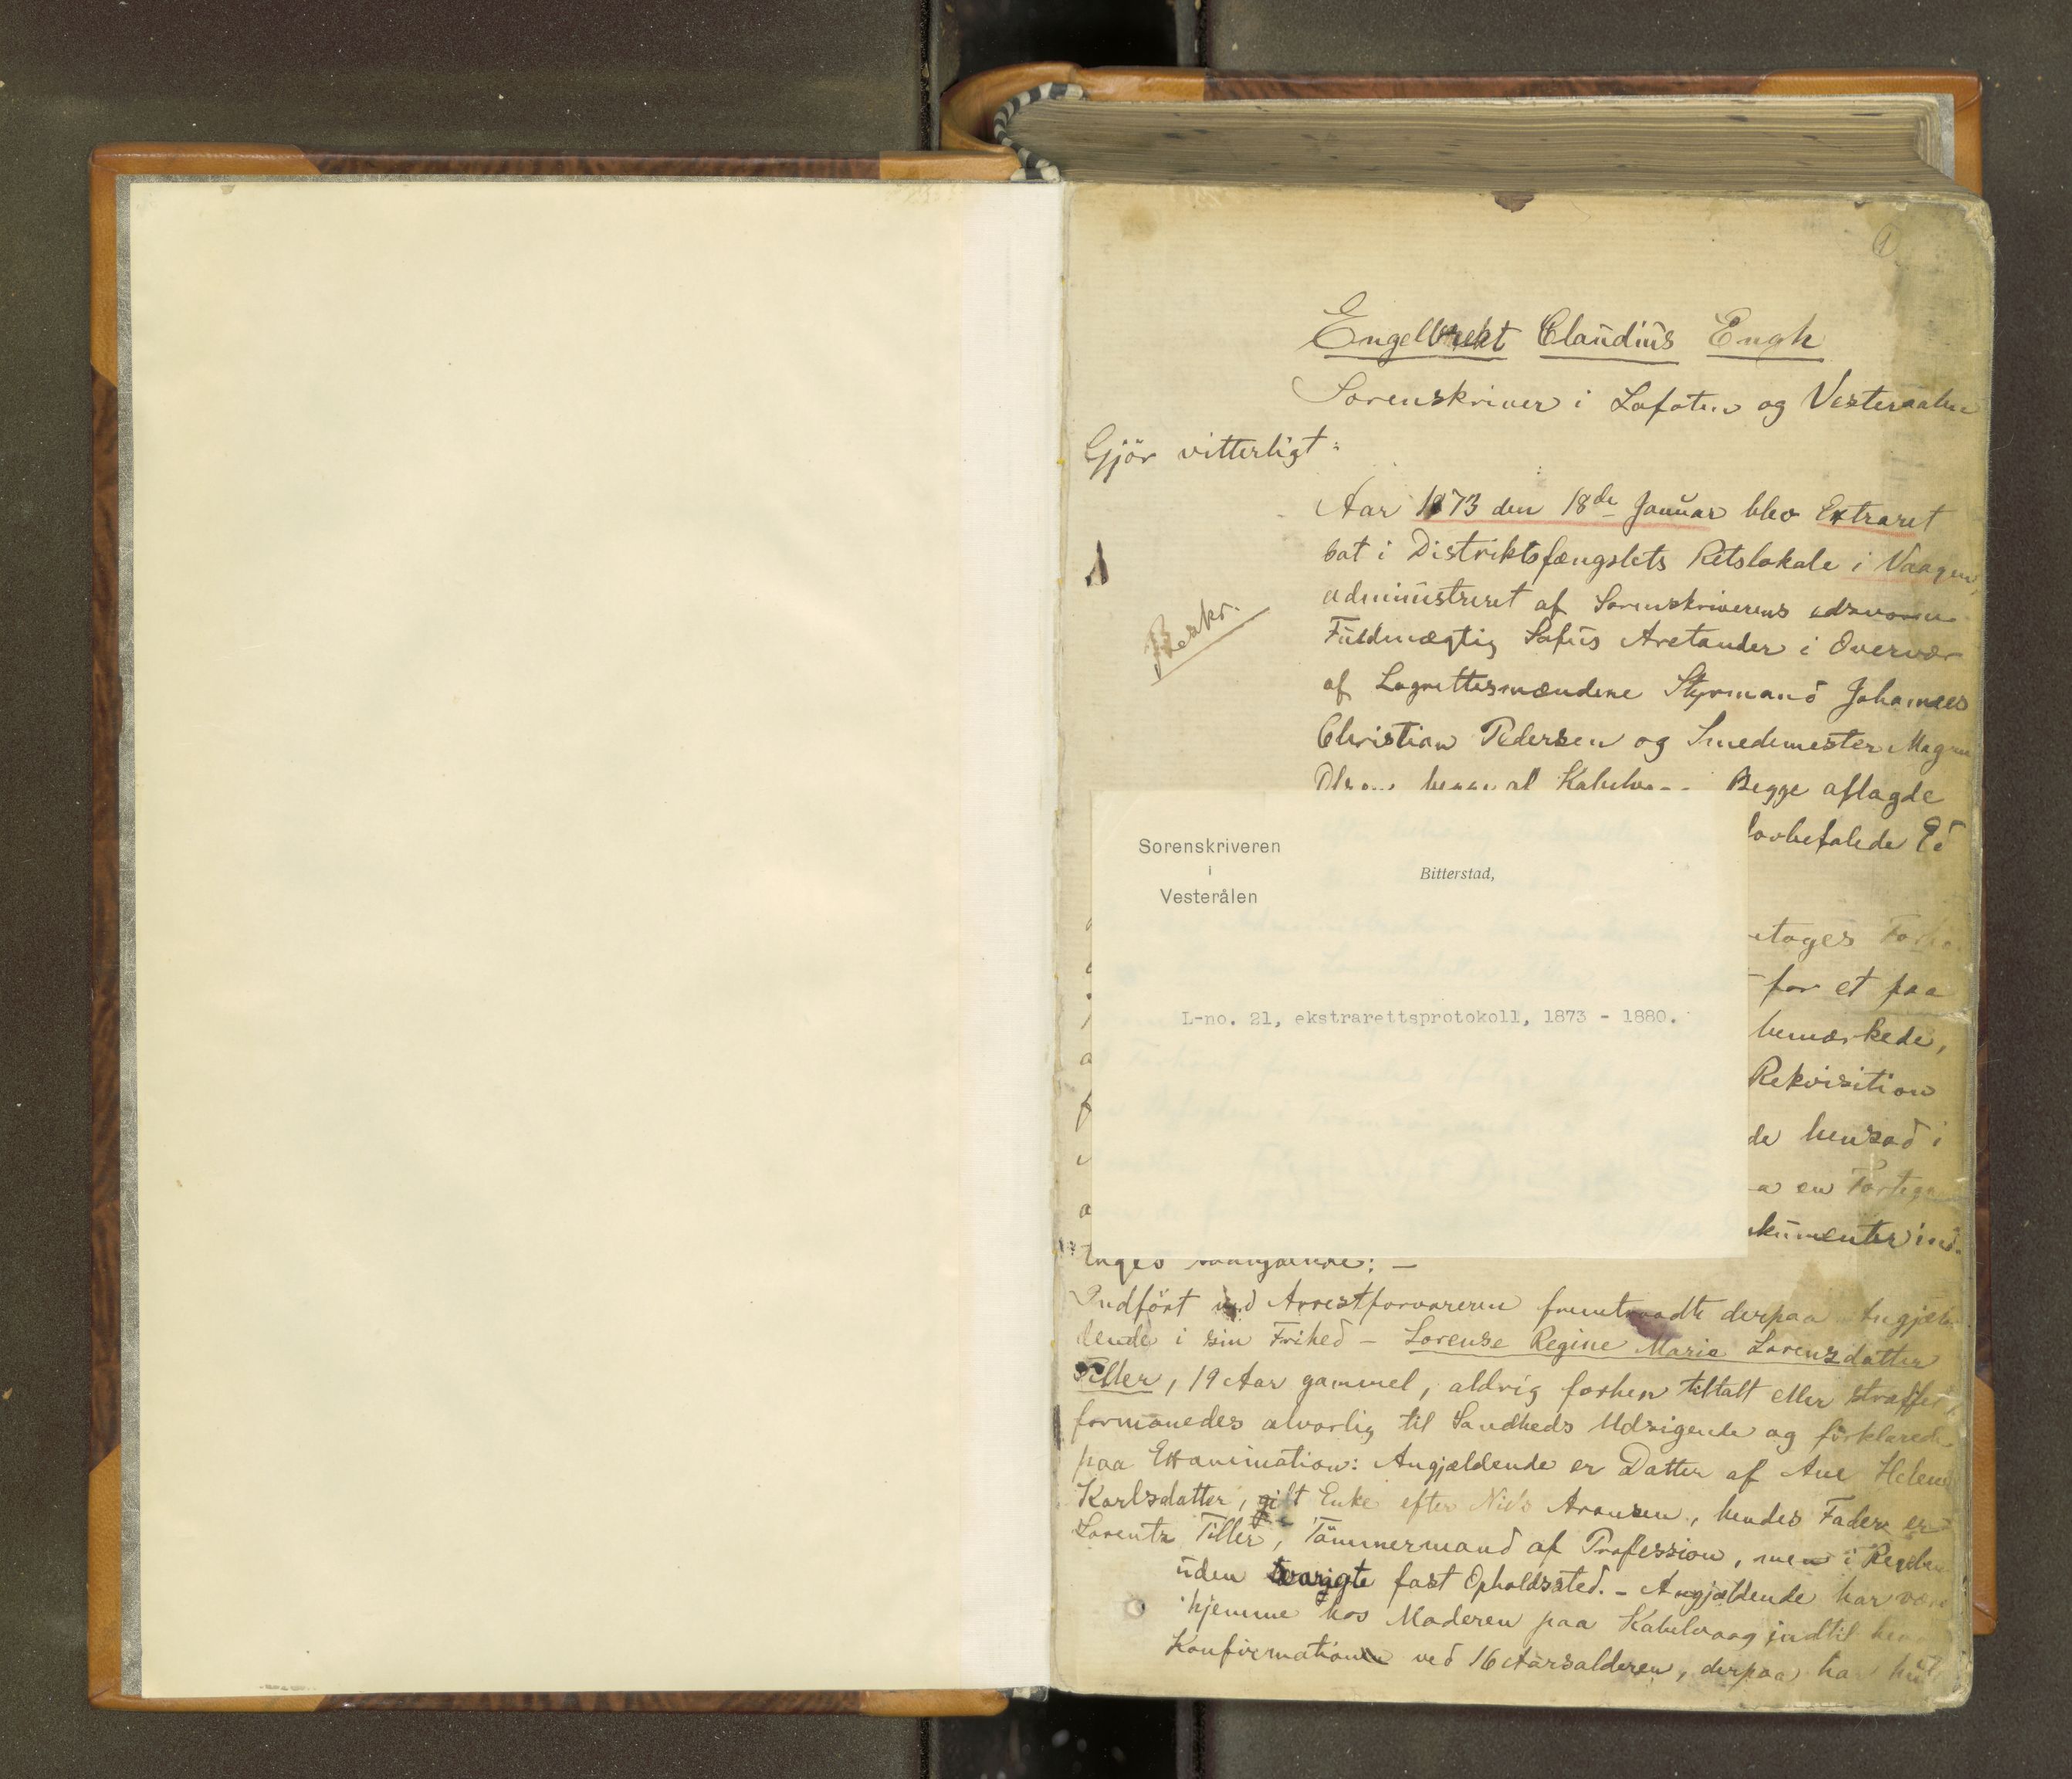 1
Engelbrekt Claudius Engh
Sorenskriver i Lofoten og Vesteraalen
Gjör vitterligt:
Aar 1873 den 18de Januar blev Extraret
sat i Distriktsfængslets Retslokale i Vaagen,
administreret af Sorenskriverens edsvorne
Fuldmægtig Sofus Arctander i Overvær
af Lagrettesmændene Styrmand Johannes
Christian Pedersen og Smedemester
Begge aflagde
lovbefalede Ed
1
Beskr.
Sorenskriveren
i
Vesterålen
Bitterstad,
L-no. 21, ekstrarettsprotokoll, 1873 - 1880.
for et paa
bemærkede,
Rekvisition
hensad i
en
Indfört ved Arrestforvareren fremtraadte derpaa Angjæl-
dende i sin Frihed - Lorense Regine Marie Lorenzdatter
Tiller, 19 Aar gammel, aldrig forhen tiltalt eller straffet,
formanedes alvorlig til Sandheds Udsigende og forklarede
paa Examination: Angjældende er Datter af Ane Helene
Karlsdatter, gift Enke efter Nils Aronsen, hendes Fader er
Lorentz Tiller, Tömmermand af Profession, men i Reglen
uden fast Opholdssted. - Angjældende har været
hjemme hos Moderen paa Kabelvaag indtil
Konfirmationen ved 16 Aarsalderen, derpaa har